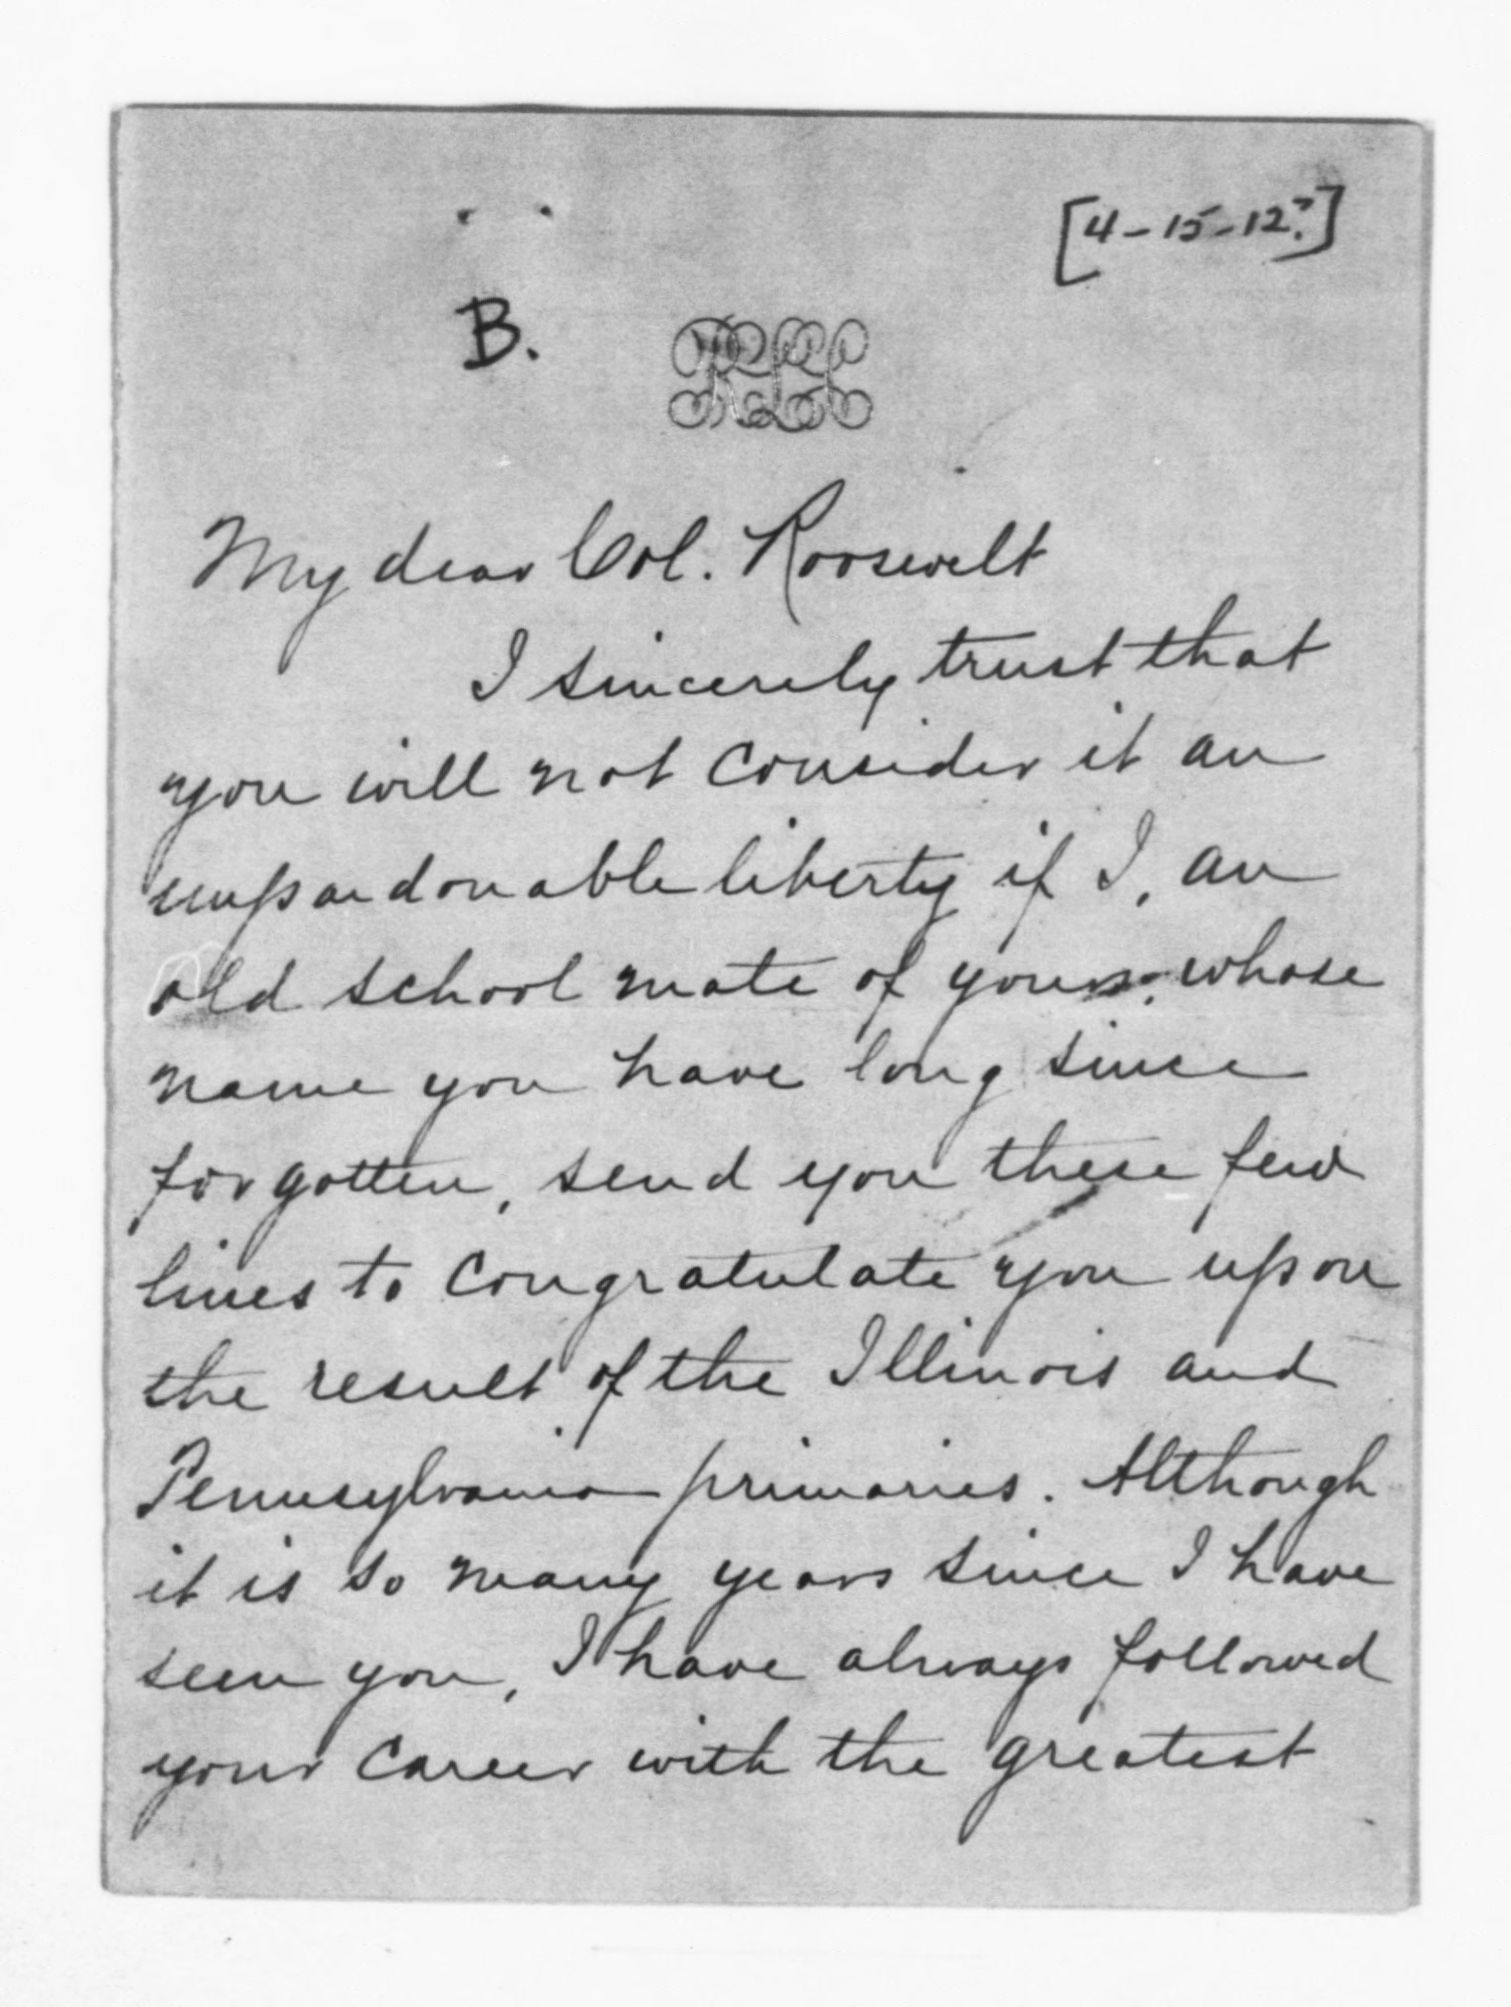 [4-15-12?]
B.
My dear Col. Roosevelt
I sincerely trust that
you will not consider it an
unpardonable liberty if I, an
old school mate of yours, whose
name you have long since
forgotten, send you these few
lines to congratulate you upon
the result of the Illinois and
Pennsylvania primaries. Although
it is so many years since I have
seen you, I have always followed
your career with the greatest